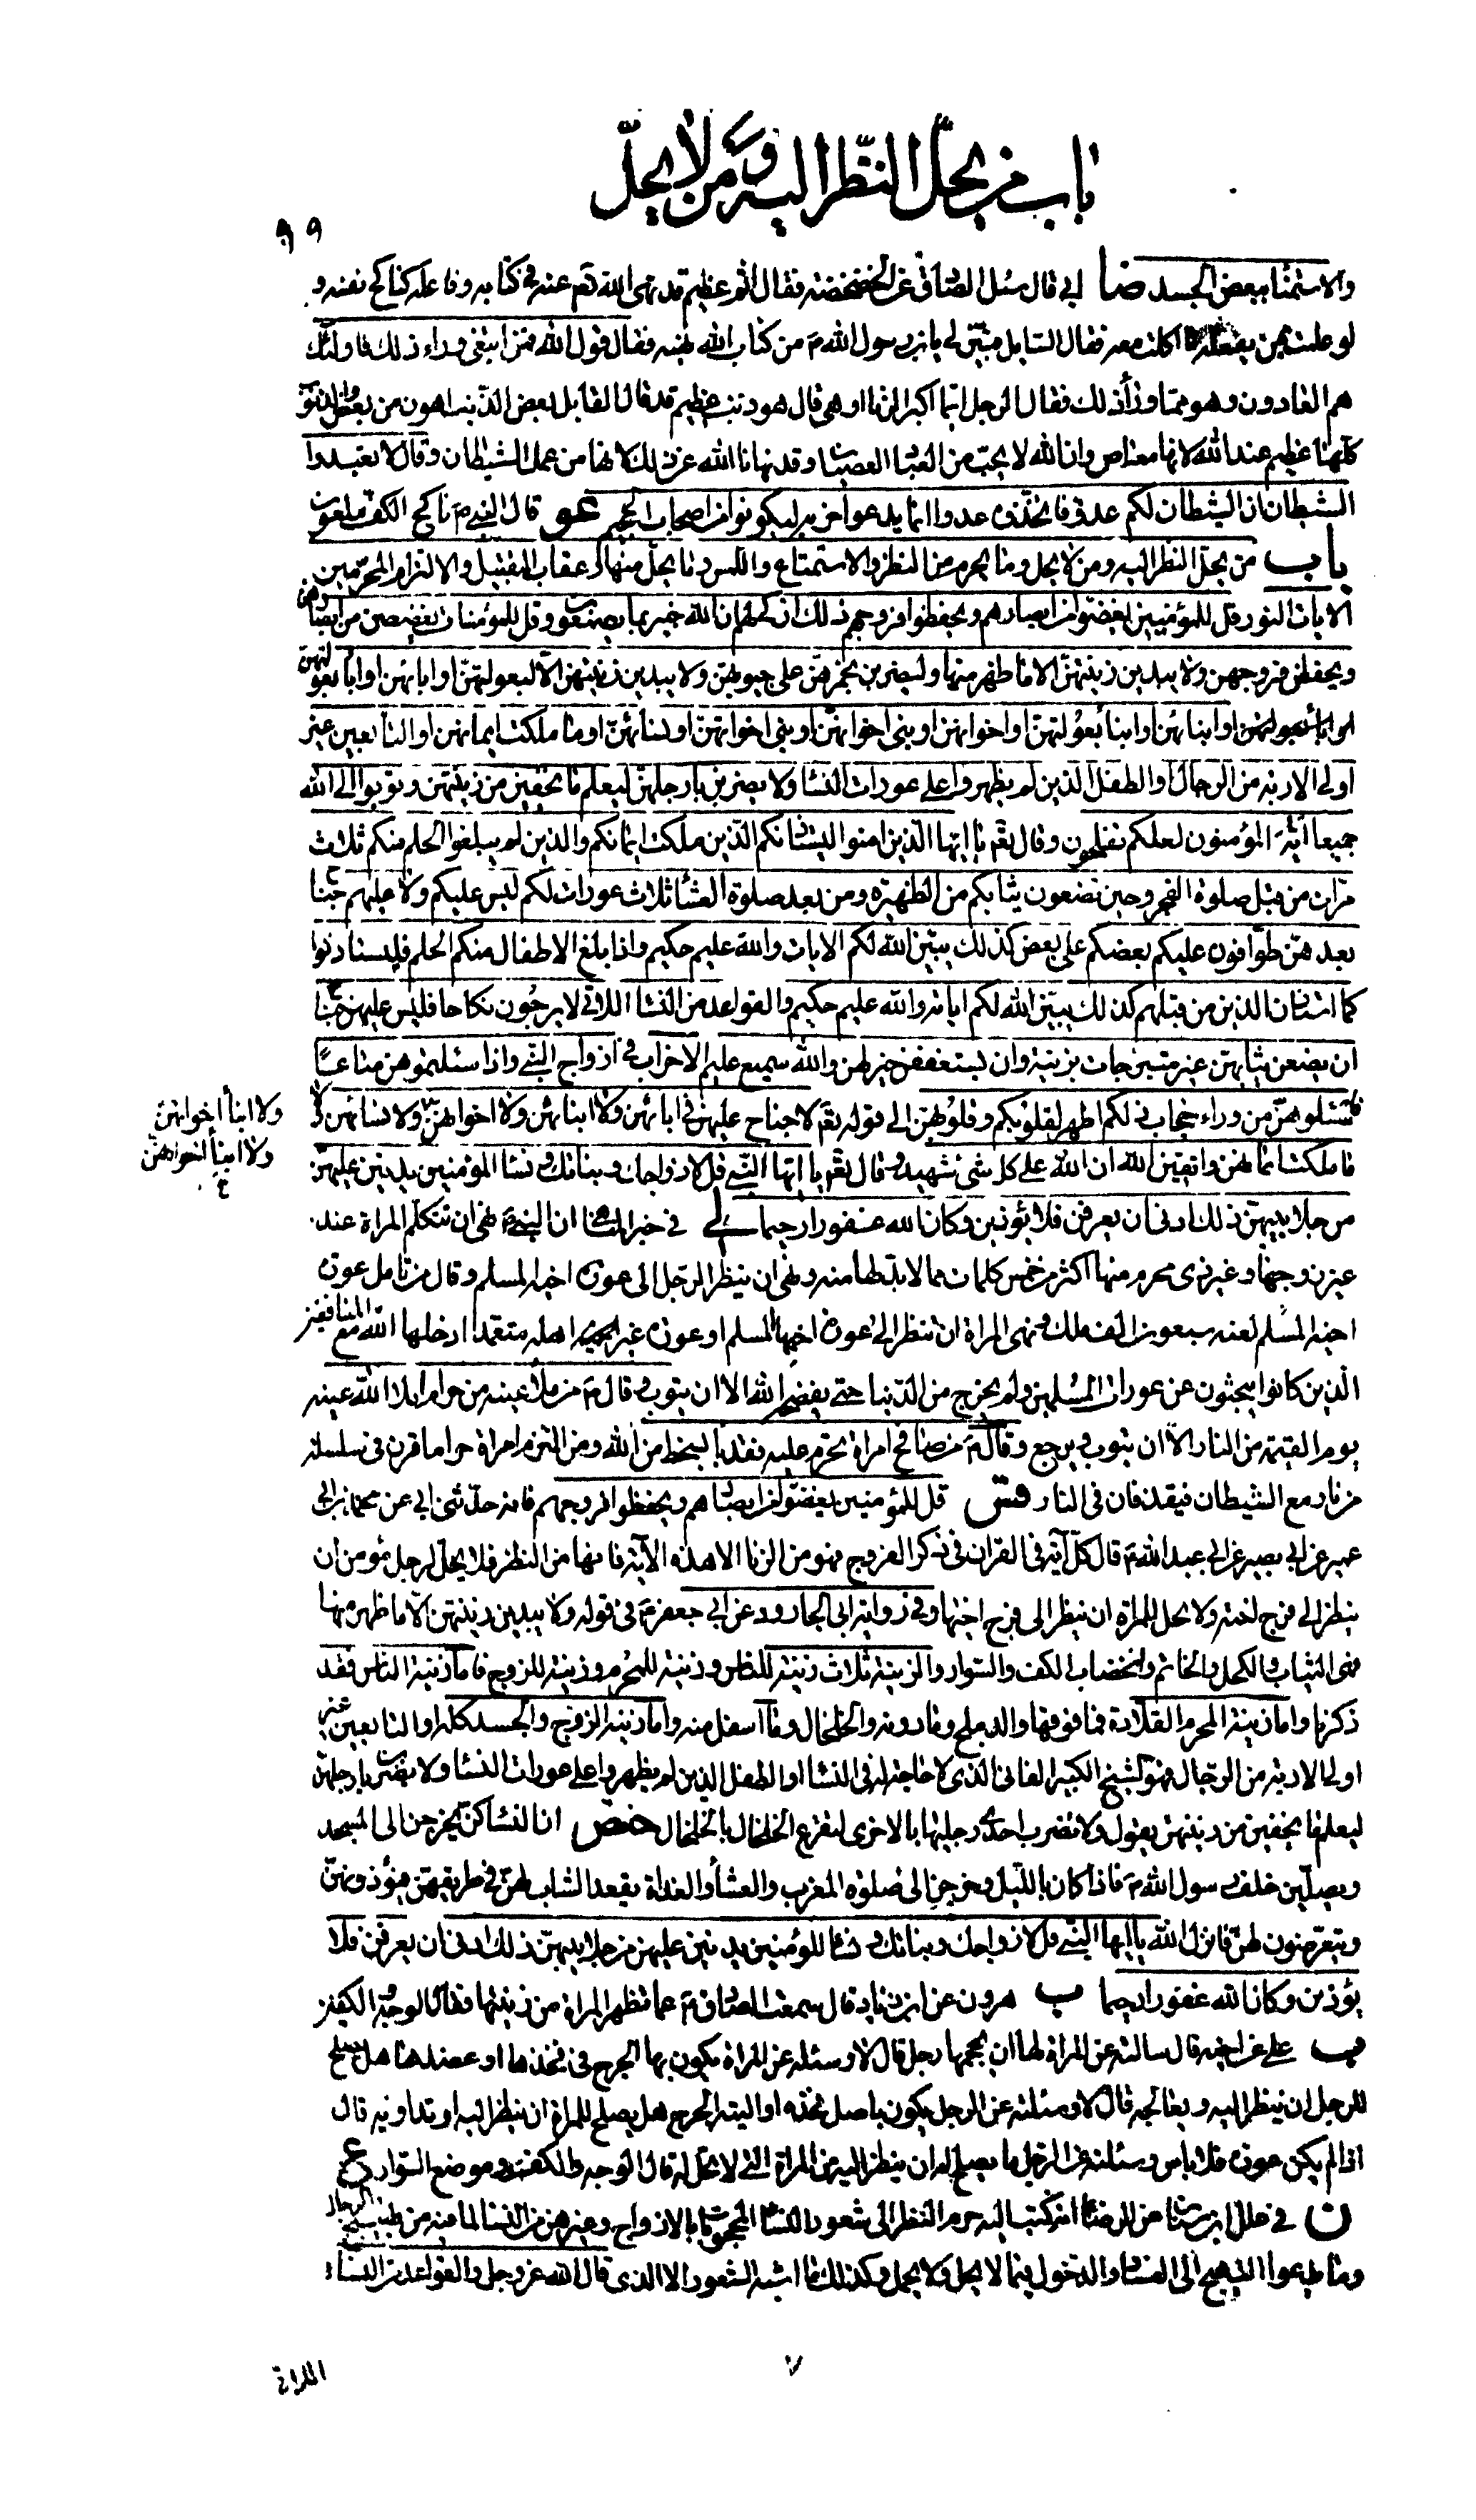 باب من يحلّ النّظر اليه و من لا يحلّ
٩٩
والاستمناء ببعض الجسد ضا ابي قال سئل الصادق عن الخضخضة فقال اثم عظيم قد نهى الله تع عنه في كتابه وفاعله كناكح نفسه و
لو علمت بمن يفعله ما اكلت معه فقال السايل فبيّن لي يا بن رسول الله ص من كتاب الله فيه فقال قول الله فمن ابتغى وراء ذلك فاولئك
هم العادون وهو مما وراء ذلك فقال الرجل ايّما اكبر الزنا او هي قال هو ذنب عظيم قد قال القايل بعض الذنب اهون من بعض والذنوب
كلّها عظيم عند الله لانها معاصي وان الله لا يحبّ من العباد العصيان وقد نهانا الله عن ذلك لانها من عمل الشيطان وقال لا تعبدوا
الشيطان ان الشيطان لكم عدو فاتخذوه عدوا انما يدعوا حزبه ليكونوا من اصحاب السعير غو قال النبي ص ناكح الكف ملعون
باب من يحلّ النظر اليه ومن لا يحل وما يحرم من النظر والاستمتاع واللمس وما يحلّ منها وعقاب التقبيل والالتزام المحرّمين
الايات النور قل للمؤمنين يغضّوا من ابصارهم ويحفظوا فروجهم ذلك ازكى لهم ان الله خبير بما يصنعون وقل للمؤمنات يغضضن من ابصارهنّ
ويحفظن فروجهن ولا يبدين زينتهنّ الا ما ظهر منها وليضربن بخمرهنّ على جيوبهنّ ولا يبدين زينتهن الّا لبعولتهنّ او ابائهن او اباء بعولتهنّ
او ابنائهن او ابناء بعولتهنّ او اخوانهن او بني اخوانهنّ او بني اخواتهنّ او نسائهنّ او ما ملكت ايمانهن او التابعين غير
اولي الاربة من الرجال او الطفل الذين لم يظهروا على عورات النساء ولا يضربن بارجلهنّ ليعلم ما يخفين من زينتهن وتوبوا الى الله
جميعا ايّه المؤمنون لعلكم تفلحون وقال تع يا ايّها الّذين امنوا ليستاذنكم الّذين ملكت ايمانكم والذين لم يبلغوا الحلم منكم ثلاث
مرّات من قبل صلوة الفجر وحين تضعون ثيابكم من الظهيرة ومن بعد صلوة العشاء ثلاث عورات لكم ليس عليكم ولا عليهم جناح
بعدهنّ طوّافون عليكم بعضكم على بعض كذلك يبيّن الله لكم الايات والله عليم حكيم واذا بلغ الاطفال منكم الحلم فليستاذنوا
كما استاذن الذين من قبلهم كذلك يبيّن الله لكم اياته والله عليم حكيم والقواعد من النساء اللاتي لا يرجون نكاحا فليس عليهن جناح
ان يضعن ثيابهنّ غير متبرّجات بزينة وان يستعففن خير لهن والله سميع عليم الاحزاب في ازواج النبي واذا سئلتموهن متاعًا
فاسئلوهنّ من وراء حجاب ذلكم اطهر لقلوبكم وقلوبهنّ الى قوله تع لا جناح عليهنّ في ابائهنّ ولا ابنائهنّ ولا اخوانهنّ ولا نسائهن ولا
ولا ابناء اخوانهن
ولا ابناء اخواتهن
ما ملكت ايمانهن واتقين الله ان الله على كل شئ شهيدا وقال تع يا ايّها النّبي قل لازواجك وبناتك ونساء المؤمنين يدنين عليهنّ
من جلابيبهنّ ذلك ادنى ان يعرفن فلا يؤذين وكان الله غفورا رحيما لي في خبر المناهي ان النبي ص نهى ان تتكلّم المراة عند
غير زوجها وغير ذي محرم منها اكثر من خمس كلمات مما لا بدّ لها منه ونهى ان ينظر الرجل الى عورة اخيه المسلم وقال من تامل عورة
اخيه المسلم لعنه سبعون الف ملك ونهى المراة ان تنظر الى عورة اختها المسلم او عورة غير اهله متعمّدا ادخله الله مع المنافقين
الّذين كانوا يبحثون عن عورات المسلمين ولم يخرج من الدّنيا حتى يفضحه الله الا ان يتوب وقال ص من ملأ عينه من حرام ملأ الله عينه
يوم القيمة من النار الّا ان يتوب ويرجع وقال ص من صافح امراة تحرم عليه فقد باء بسخط من الله ومن التزم امراة حراما قرن في سلسلة
من نار مع الشيطان فيقذفان في النار فس قل للمؤمنين يغضّوا من ابصارهم ويحفظوا فروجهم فانه حدّثني ابي عن محمد بن ابي
عمير عن ابي بصير عن ابي عبد الله ع قال كلّ آية في القران في ذكر الفروج فهو من الزنا الا هذه الآية فانها من النظر فلا يحلّ لرجل مؤمن ان
ينظر الى فرج اخته ولا يحل للمراة ان تنظر الى فرج اخيها وفي رواية ابي الجارود عن ابي جعفر ع في قوله ولا يبدين زينتهن الّا ما ظهر منها
فهي الثياب والكحل والخاتم والخضاب الكف والسّوار والزينة ثلاث زينة للناس وزينة للمحرم وزينة للزوج فاما زينة الناس فقد
ذكرنا واما زينة المحرم القلادة فما فوقها والدملج وما دونه والخلخال وما اسفل منه واما زينة الزوج والجسد كله او التابعين غير
اولي الاربة من الرّجال فهو الشيخ الكبير الفاني الذي لا حاجة له في النساء او الطفل الذين لم يظهروا على عورات النساء ولا يضربن بارجلهن
ليعلم ما يخفين من زينتهن يقول ولا تضرب احدى رجليها بالاخرى ليقرع الخلخال بالخلخال فس ان النساء كنّ يخرجن الى المسجد
ويصلّين خلف رسول الله ص فاذا كان بالليل وخرجن الى صلوة المغرب والعشاء والغداة يقعد الشاب لهنّ في طريقهنّ فيؤذونهنّ
ويتعرّضون لهنّ فانزل الله يا ايّها النّبي قل لازواجك وبناتك ونساء المؤمنين يدنين عليهن من جلابيبهنّ ذلك ادنى ان يعرفن فلا
يؤذين وكان الله غفورا رحيما ب هرون عن ابن زياد قال سمعت الصادق ع عما تظهر المراة من زينتها قال الوجه والكفين
ب علي عن اخيه قال سالته عن المراة لها ان يحجمها رجل قال لا وسئلته عن المراة يكون بها الجرح في فخذها او عضدها هل يصلح
للرجل ان ينظر اليه ويعالجه قال لا وسئلته عن الرجل يكون باصل فخذه او اليته الجرح هل يصلح للمراة ان ينظر اليه او تداويه قال
اذا لم يكن عورة فلا باس وسئلته عن الرجل ما يصلح له ان ينظر اليه من المراة التي لا تحلّ له قال الوجه والكف وموضع السّوار ع
ن في علل ابن سنان عن الرضا انه كتب اليه حرم النظر الى شعور النساء المحجوبات بالازواج وغيرهن من النساء لما فيه من تهييج الرجال
وما يدعوا التهييج الى الفساد والدخول فيما لا يحل ولا يجمل وكذلك ما اشبه الشعور الا الذي قال الله عز وجل والقواعد من النساء
٧